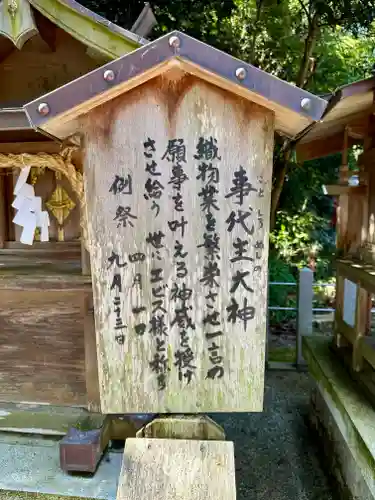 ことしろぬしの
事代主大神
織物業を繁栄させ一言の
願事を叶える神威を授け
させ給う 世にエビス様と称す
例祭 四月一日
九月二十三日